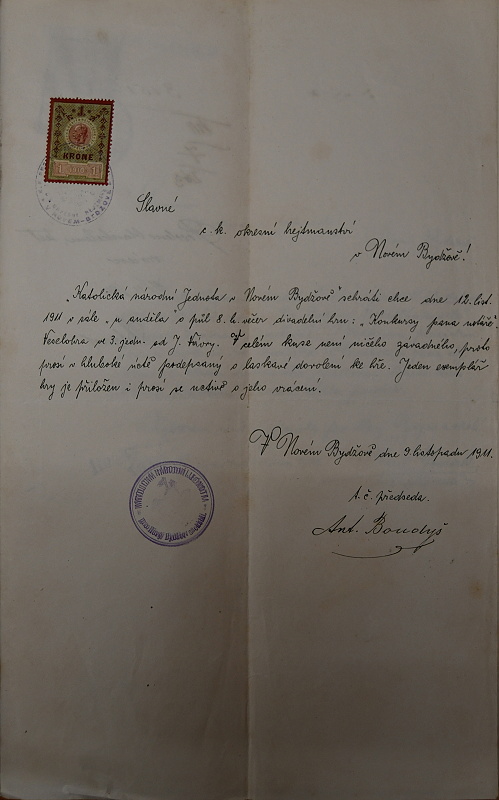 1
KRONE
1 1
Slavné
c. k. okresní hejtmanství
v Novém Bydžově!
„Katolická národní Jednota v Novém Bydžově" sehráti chce dne 12. list.
1911 v sále „u anděla" o půl 8. h. večer divadelní hru: „Konkursy pana notáře".
Veselohra ve 3. jedn. od J. Vávry. V celém kuse není ničeho závadného, pročto
prosí v hluboké úctě podepsaný o laskavé dovolení ke hře. Jeden exemplář
hry je přiložen i prosí se uctivě o jeho vrácení.
V Novém Bydžově dne 9. listopadu 1911.
t. č. předseda.
Ant. Boudyš